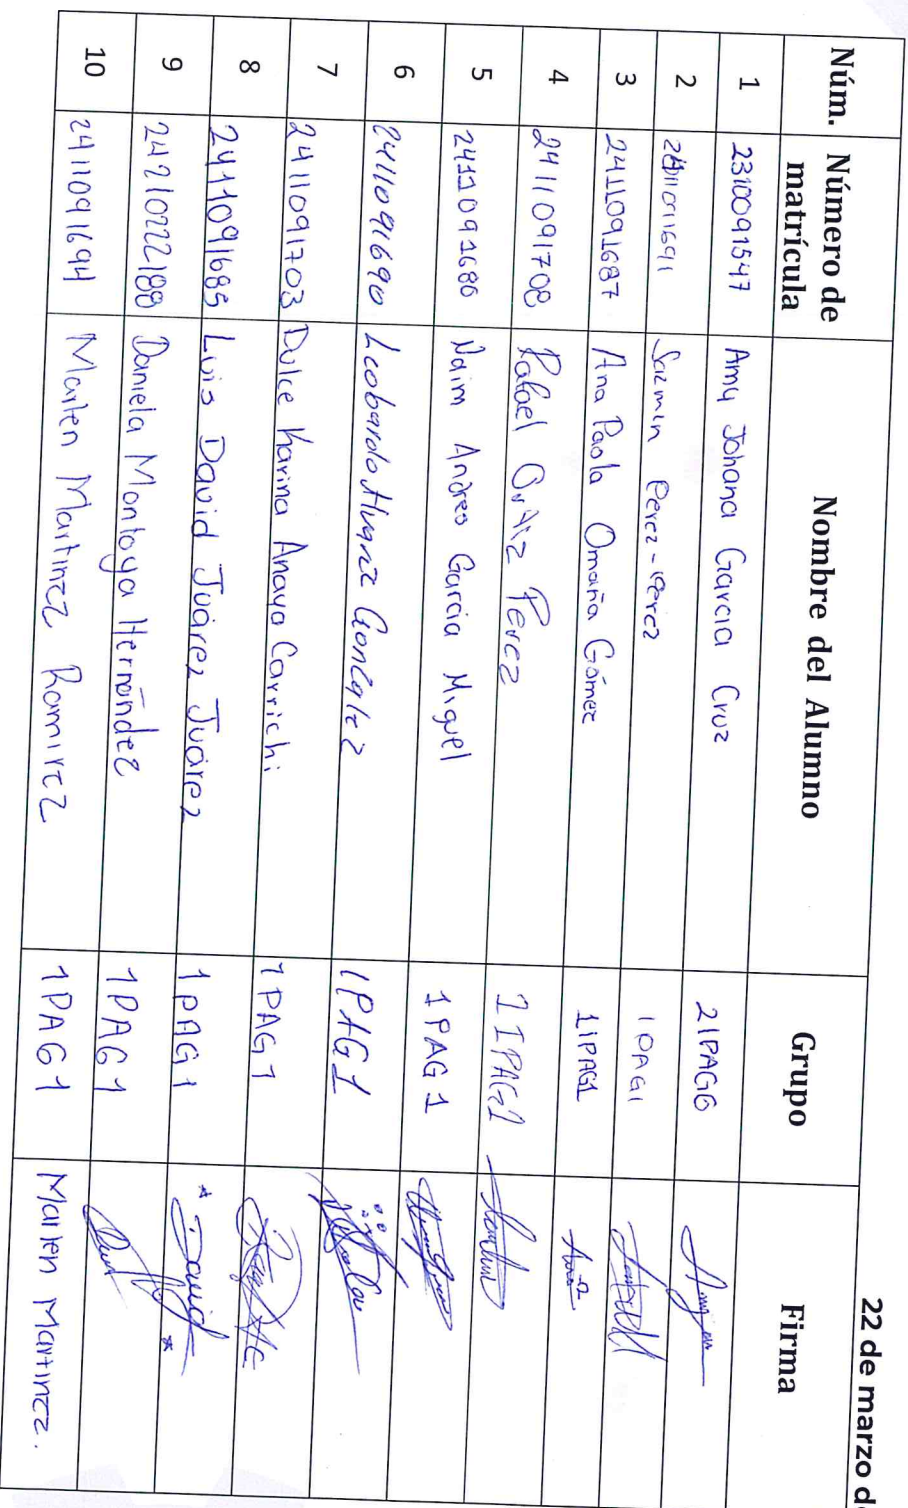 22 de marzo d
Núm. Número de matrícula Nombre del Alumno Grupo Firma
1 2310091547 Amy Johana Garcia Cruz 21PAG6
2 Perez - Perez 1PAG1
3 2411091687 Ana Paola Omaña Gómez 11PAG1
4 2411091708 Rafael Ortiz Perez 1IPAG1
5 2411091686 Naim Andres Garcia Miguel 1PAG1
6 2411091690 1PAG1
7 2411091703 Dulce Karina Anaya Carrichi 1PAG1
8 2411091685 Luis David Juárez Juárez 1PAG1 David
9 2421022188 Daniela Montoya Hernández 1PAG1
10 2411091694 Marlen Martinez Ramirez 1PAG1 Marlen Martinez.